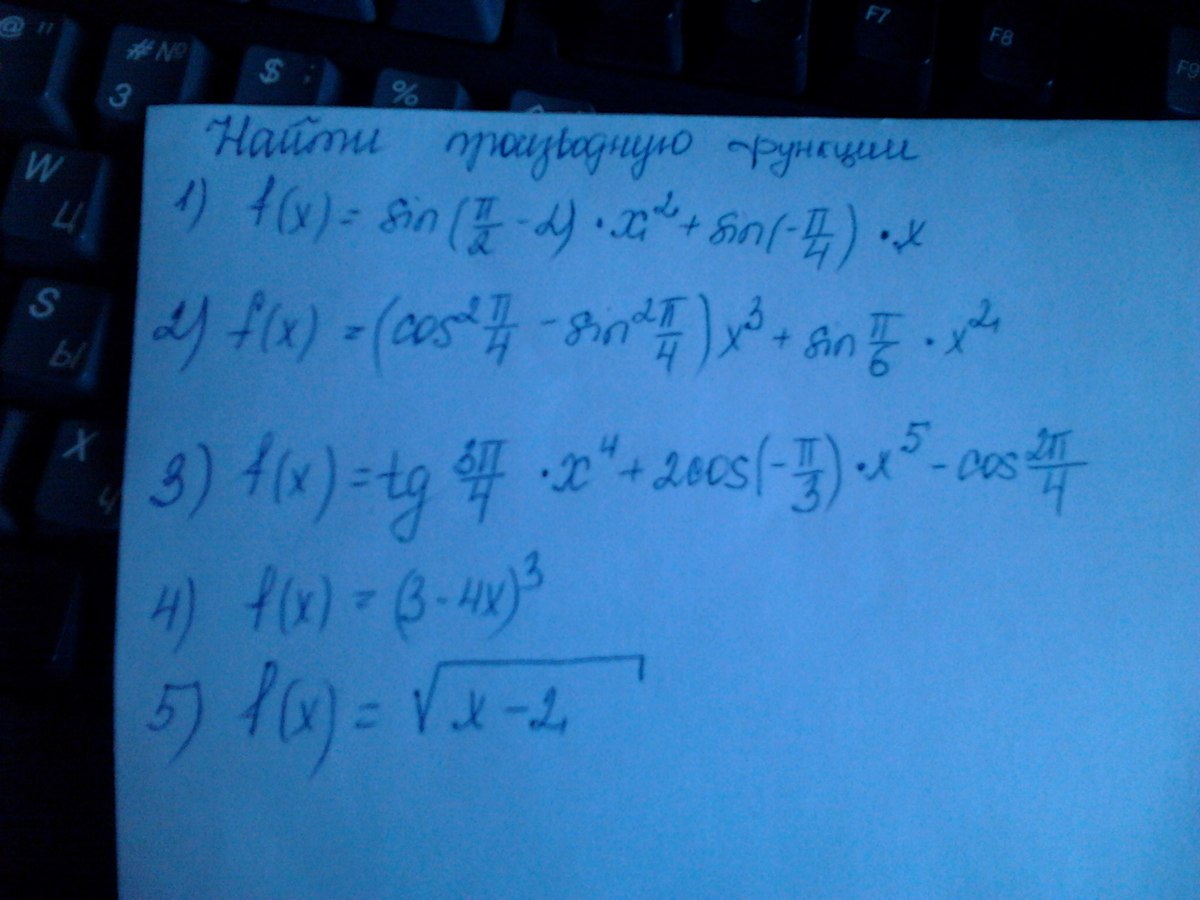 @ "
#№
3
$ ;
%
F7
F8
F9
W
Ц
S
Ы
X
Ч
Найти производную функции
1) f(x) = sin(π/2 - 2) · x² + sin(-π/4) · x
2) f(x) = (cos² π/4 - sin² π/4) x³ + sin π/6 · x²
3) f(x) = tg 3π/4 · x⁴ + 2cos(-π/3) · x⁵ - cos 2π/4
4) f(x) = (3 - 4x)³
5) f(x) = √x - 2